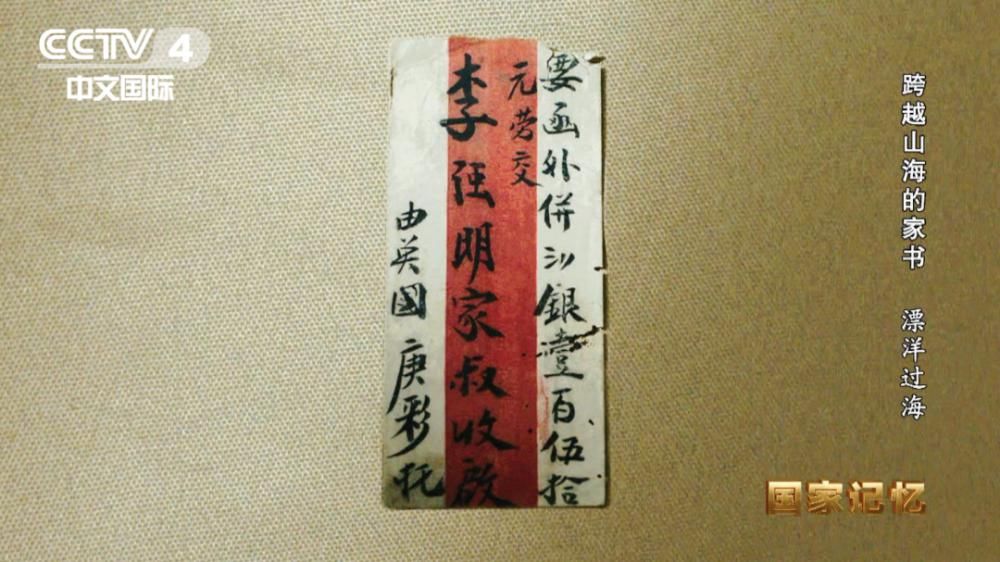 CCTV 4
中文国际
跨越山海的家书 漂洋过海
要函外併銀壹百伍拾
元劳交
李明家叔收啟
由英國庚彩托
国家记忆